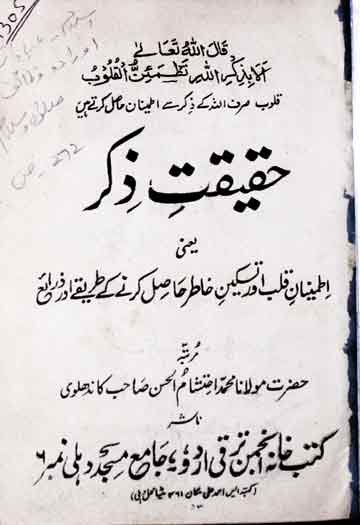 1305
قال اللہ تعالےٰ
اَلَا بِذِكْرِ اللهِ تَطْمَئِنُّ الْقُلُوْبُ
قلوب صرف اللہ کے ذکر سے اطمینان حاصل کرتے ہیں
اوراد و وظائف
۲۷۲ ص
حقیقتِ ذکر
یعنی
اطمینانِ قلب اور تسکینِ خاطر حاصل کرنے کے طریقے اور ذرائع
مرتبہ
حضرت مولانا محمد احتشام الحسن صاحب کاندھلوی
ناشر
کتب خانہ انجمن ترقی اردو، جامع مسجد دہلی نمبر ۶